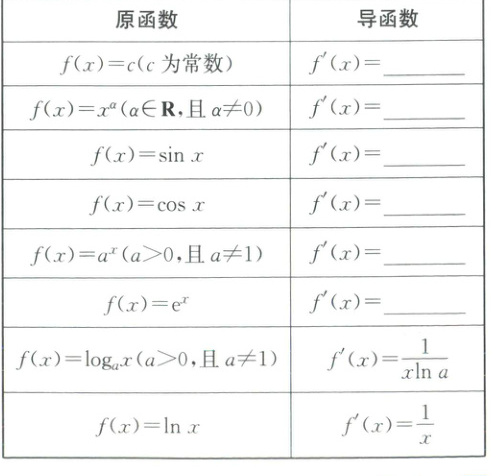 原函数 导函数
f(x)=c(c 为常数) f′(x)=______
f(x)=x^α(α∈R,且 α≠0) f′(x)=______
f(x)=sin x f′(x)=______
f(x)=cos x f′(x)=______
f(x)=a^x(a>0,且 a≠1) f′(x)=______
f(x)=e^x f′(x)=______
f(x)=log_a x(a>0,且 a≠1) f′(x)=1/(xln a)
f(x)=ln x f′(x)=1/x